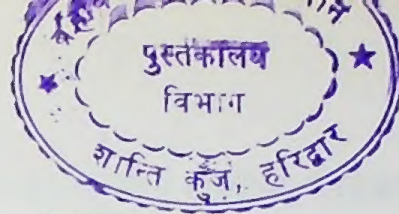 पुस्तकालय
विभाग
शान्ति कुंज, हरिद्वार